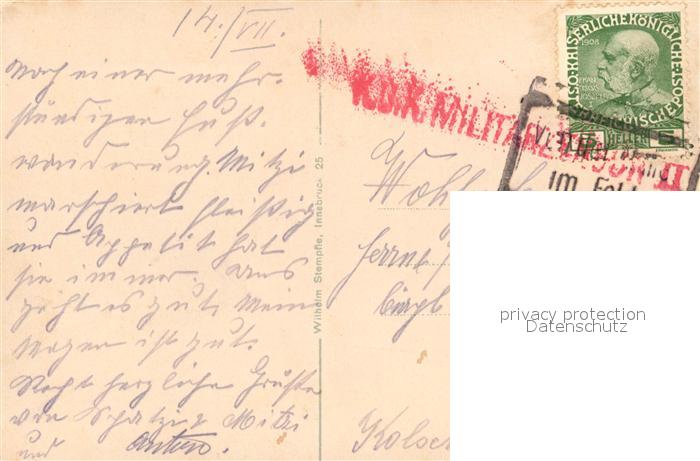 14./VII.
Nach einer mehr-
stündigen Fuß-
wanderung. Mitzi
marschiert fleißig
und Appetit hat
sie immer. Uns
geht es gut. Mein
Magen ist gut.
Recht herzliche Grüße
von Schatzi & Mitzi
und Arthur.
Wilhelm Stempfle, Innsbruck 25
K.D.K. MILITÄRZENSUR II
KAISERLICHE KÖNIGLICHE
1908
HELLER
Im Feld
Wohl
Herrn
privacy protection
Datenschutz